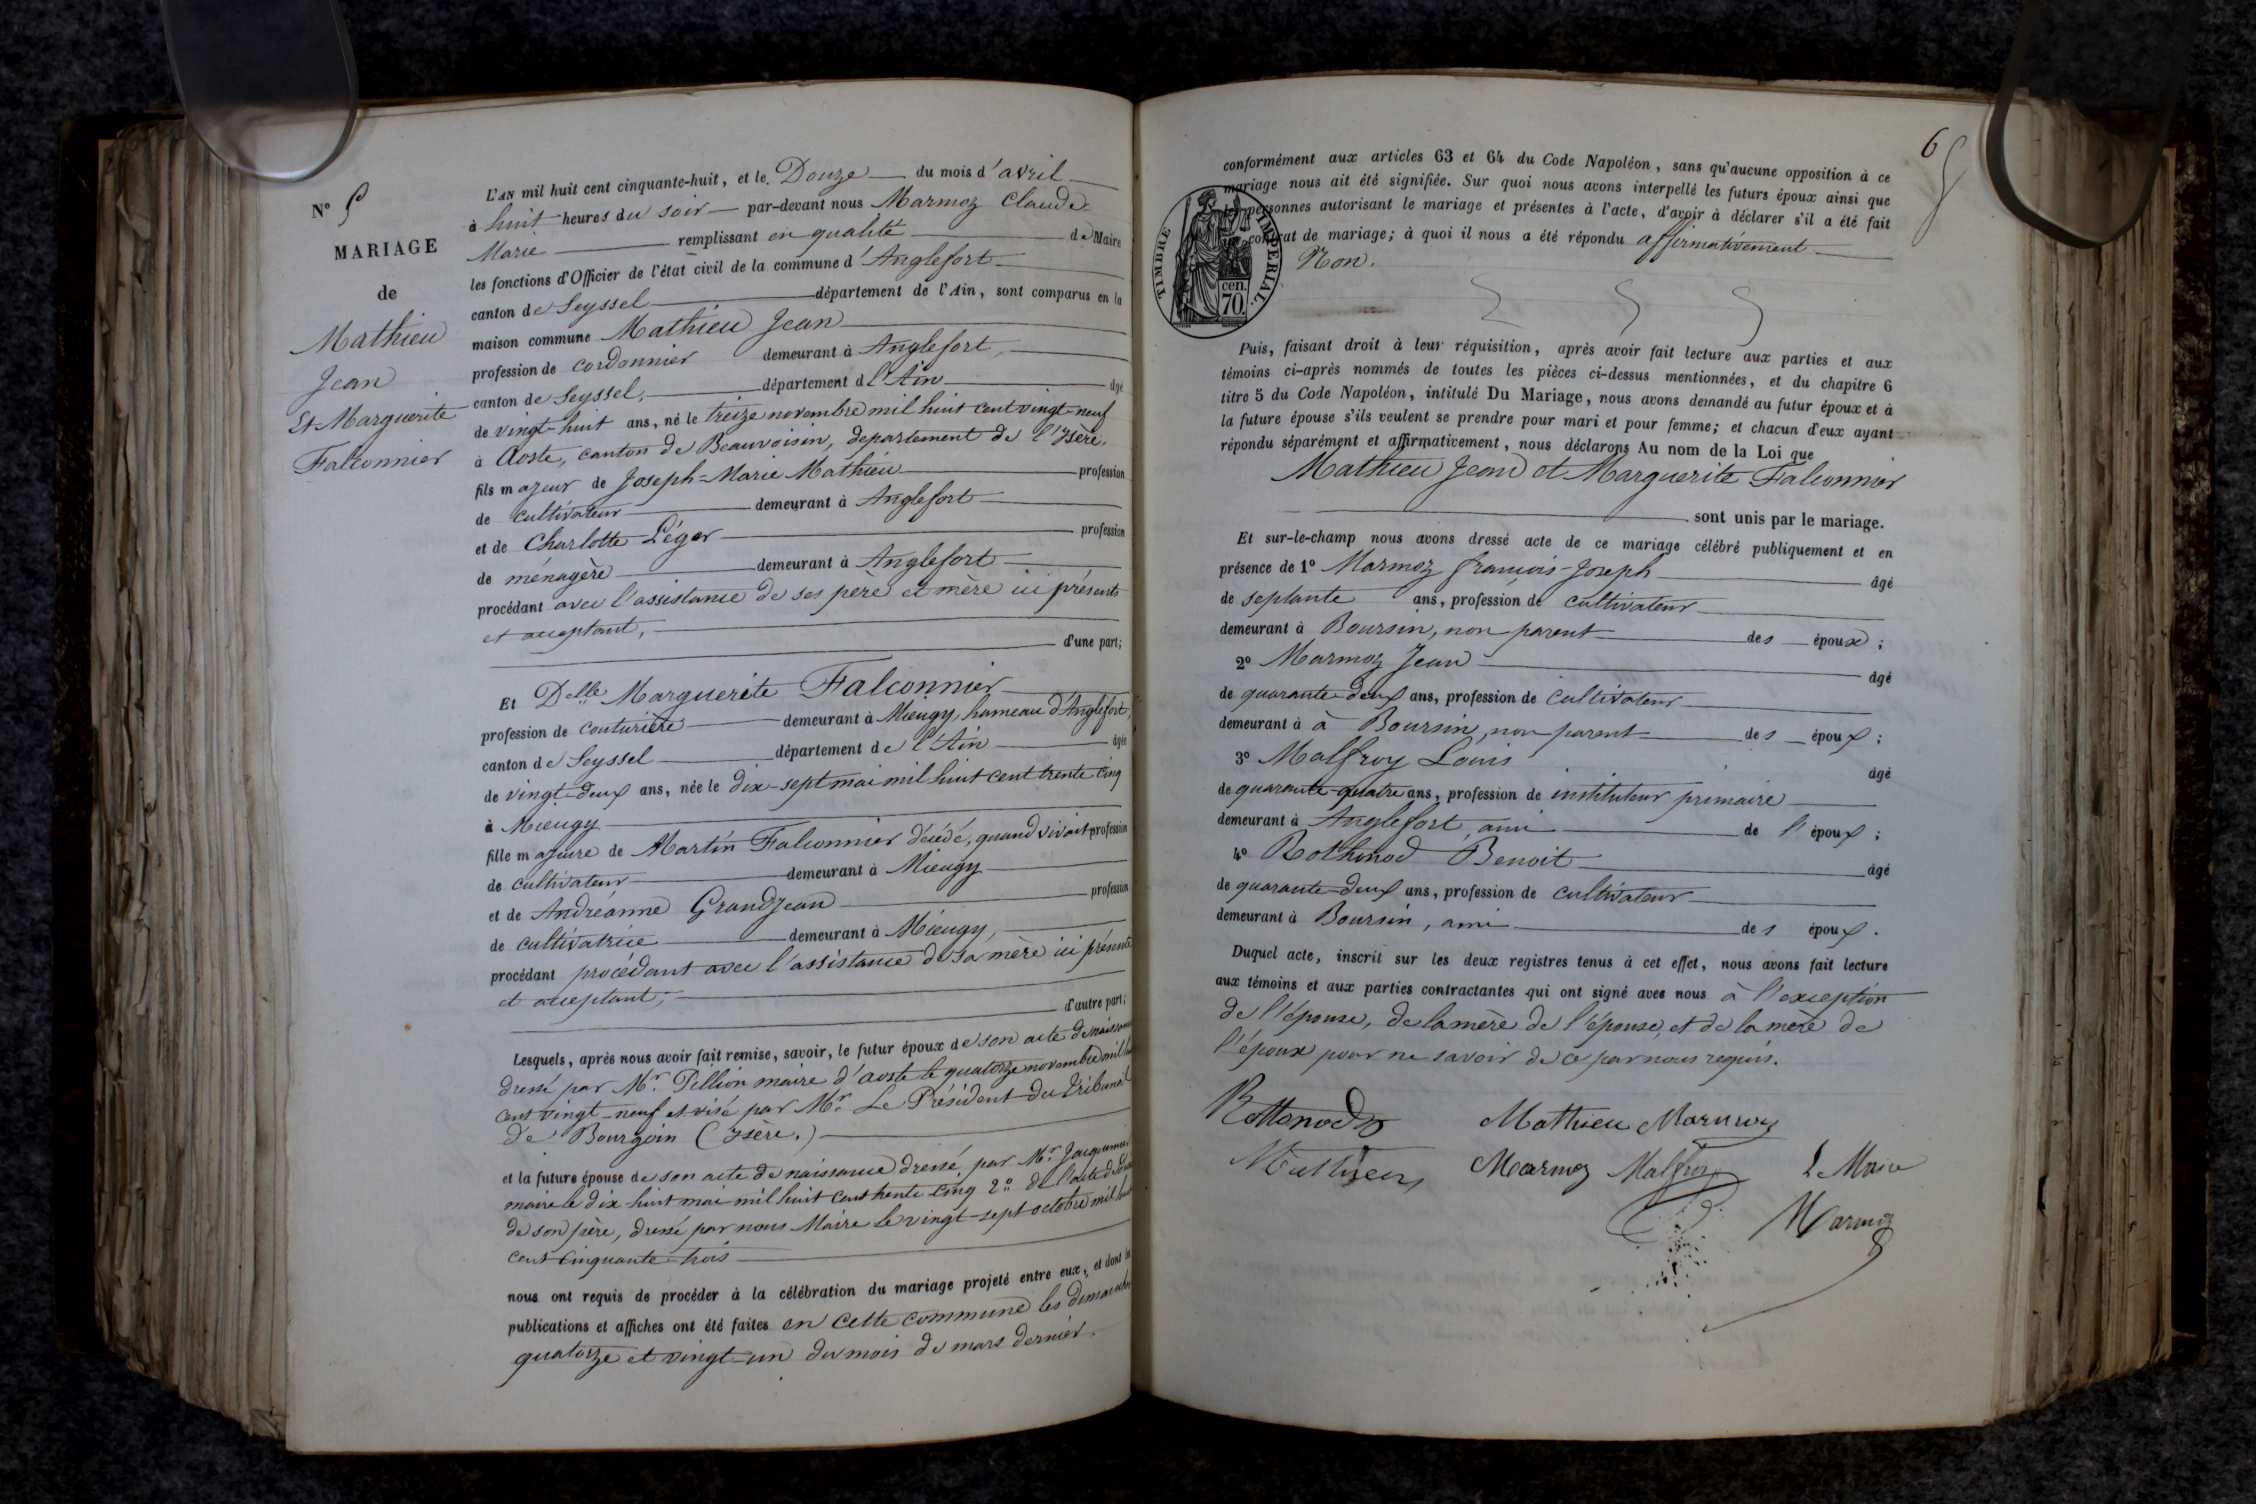 N° 5
MARIAGE
de
Mathieu
Jean
Et Marguerite
Falconnier
L'AN mil huit cent cinquante-huit, et le Douze du mois d'avril
à huit heures du soir par-devant nous Marmoz Claude-
Marie remplissant en qualité de Maire
les fonctions d'Officier de l'état civil de la commune d'Anglefort
canton de Seyssel département de l'Ain, sont comparus en la
maison commune Mathieu Jean
profession de cordonnier demeurant à Anglefort,
canton de Seyssel, département de l'Ain âgé
de vingt-huit ans, né le treize novembre mil huit cent vingt-neuf
à Aoste, canton de Beauvoisin, departement de l'Isère.
fils majeur de Joseph-Marie Mathieu profession
de cultivateur demeurant à Anglefort
et de Charlotte Léger profession
de ménagère demeurant à Anglefort
procédant avec l'assistance de ses père et mère ici présents
et acceptant, d'une part;
Et Delle Marguerite Falconnier
profession de couturière demeurant à Mieugy, hameau d'Anglefort,
canton de Seyssel département de l'Ain âgée
de vingt-deux ans, née le dix-sept mai mil huit cent trente cinq
à Mieugy
fille majeure de Martin Falconnier décédé, quand vivait profession
de cultivateur demeurant à Mieugy
et de Andréanne Grandjean profession
de cultivatrice demeurant à Mieugy,
procédant procédant avec l'assistance de sa mère ici présente
et acceptant; d'autre part;
Lesquels, après nous avoir fait remise, savoir, le futur époux de son acte de naissance
dressé par Mr. Pellion maire d'aoste le quatorze novembre mil huit
cent vingt-neuf et visé par Mr. Le Président du tribunal
de Bourgoin (Isère.)
et la future épouse de son acte de naissance dressé par Mr
maire le dix huit mai mil huit cent trente cinq 2° de l'acte de décès
de son père, dressé par nous Maire le vingt-sept octobre mil huit
cent cinquante trois
nous ont requis de procéder à la célébration du mariage projeté entre eux, et dont les
publications et affiches ont été faites en cette commune les dimanches
quatorze et vingt-un du mois de mars dernier.
6
conformément aux articles 63 et 64 du Code Napoléon, sans qu'aucune opposition à ce
mariage nous ait été signifiée. Sur quoi nous avons interpellé les futurs époux ainsi que
les personnes autorisant le mariage et présentes à l'acte, d'avoir à déclarer s'il a été fait
contrat de mariage; à quoi il nous a été répondu affirmativement
Non.
TIMBRE IMPERIAL.
cen.
70.
Puis, faisant droit à leur réquisition, après avoir fait lecture aux parties et aux
témoins ci-après nommés de toutes les pièces ci-dessus mentionnées, et du chapitre 6
titre 5 du Code Napoléon, intitulé Du Mariage, nous avons demandé au futur époux et à
la future épouse s'ils veulent se prendre pour mari et pour femme; et chacun d'eux ayant
répondu séparément et affirmativement, nous déclarons Au nom de la Loi que
Mathieu Jean et Marguerite Falconnier
sont unis par le mariage.
Et sur-le-champ nous avons dressé acte de ce mariage célébré publiquement et en
présence de 1° Marmoz françois-Joseph âgé
de septante ans, profession de cultivateur
demeurant à Boursin, non parent des époux;
2° Marmoz Jean âgé
de quarante-deux ans, profession de cultivateur
demeurant à à Boursin, non parent des époux;
3° Malfroy Louis âgé
de quarante-quatre ans, profession de instituteur primaire
demeurant à Anglefort, ami de l'époux;
4° Rothonod Benoit âgé
de quarante-deux ans, profession de cultivateur
demeurant à Boursin, ami des époux.
Duquel acte, inscrit sur les deux registres tenus à cet effet, nous avons fait lecture
aux témoins et aux parties contractantes qui ont signé avec nous à l'exception
de l'épouse, de la mère de l'épouse, et de la mère de
l'époux pour ne savoir de ce par nous requis.
Rottonod Mathieu Marmoz
Mathieu Marmoz Malfroy Le Maire
Marmoz